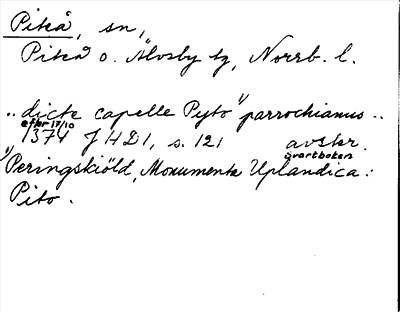 Piteå, sn,
Piteå o. Älvsby tg, Norrb. l.
.. dicte capelle Pyto" parrochianus ..
efter 17/10
1374 JHD1, s. 121 avskr.
svartboken
"Peringskiöld, Monumenta Uplandica:
Pito.